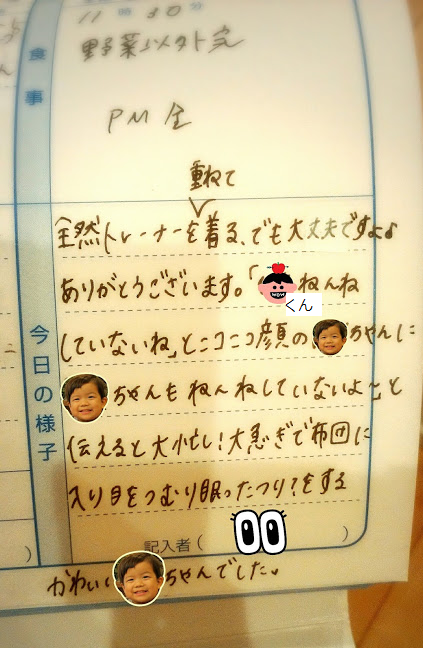 11時30分
野菜以外完
食事
PM 全
重ねて
全然トレーナーを着る、でも大丈夫ですよ♪
ありがとうございます。「 ねんね
くん
していないね」とニコニコ顔の ちゃんに
ちゃんもねんねしていないよ〜と
伝えると大忙し！大急ぎで布団に
入り目をつむり眠ったつり？をする
今日の様子
記入者（ ）
かわいい ちゃんでした。